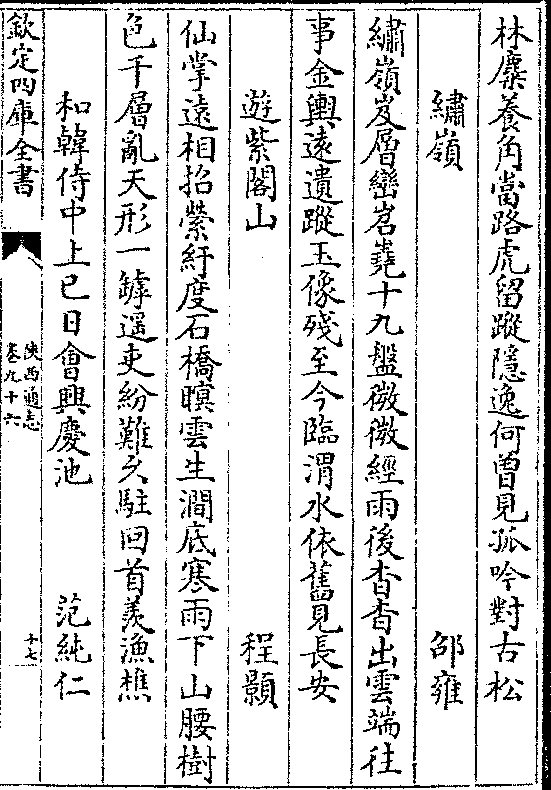 林麋養角當路虎留蹤隱逸何曾見孤吟對古松
繡嶺　邵雍
繡嶺岌層巒岧嶤十九盤微微經雨後杳杳出雲端往
事金輿遠遺蹤玉像殘至今臨渭水依舊見長安
遊紫閣山　程顥
仙掌逺相招縈紆度石橋暝雲生澗底寒雨下山腰樹
色千層亂天形一罅遥吏紛難久駐回首羨漁樵
和韓侍中上巳日會興慶池　范純仁
欽定四庫全書
陜西通志
卷九十六
十七